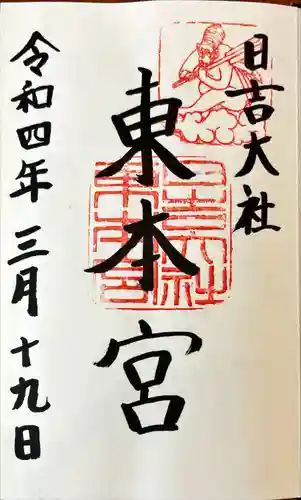 日吉大社
東本宮
令和四年三月十九日